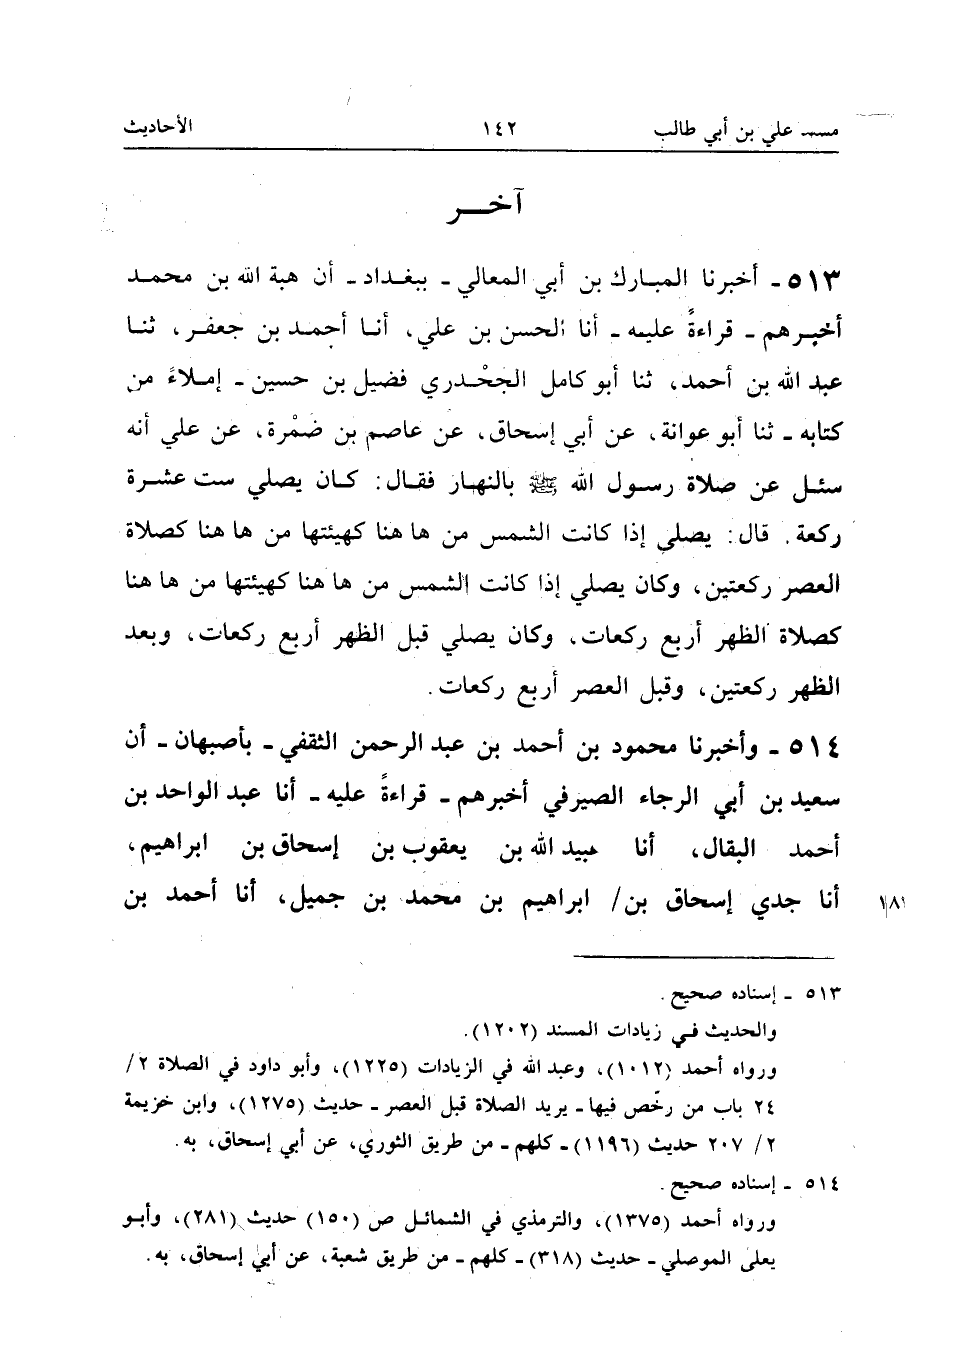 مسند علي بن أبي طالب ١٤٢ الأحاديث
آخــر
٥١٣ - أخبرنا المبارك بن أبي المعالي - ببغداد - أن هبة الله بن محمد
أخبرهم - قراءةً عليه - أنا الحسن بن علي، أنا أحمد بن جعفر، ثنا
عبد الله بن أحمد، ثنا أبو كامل الجَحْدري فضيل بن حسين - إملاءً من
كتابه - ثنا أبو عوانة، عن أبي إسحاق، عن عاصم بن ضمْرة، عن علي أنه
سئل عن صلاة رسول الله ﷺ بالنهار فقال: كان يصلي ست عشرة
ركعة. قال: يصلي إذا كانت الشمس من ها هنا كهيئتها من ها هنا كصلاة
العصر ركعتين، وكان يصلي إذا كانت الشمس من ها هنا كهيئتها من ها هنا
كصلاة الظهر أربع ركعات، وكان يصلي قبل الظهر أربع ركعات، وبعد
الظهر ركعتين، وقبل العصر أربع ركعات.
٥١٤ - وأخبرنا محمود بن أحمد بن عبد الرحمن الثقفي - بأصبهان - أن
سعيد بن أبي الرجاء الصيرفي أخبرهم - قراءةً عليه - أنا عبد الواحد بن
أحمد البقال، أنا عبيد الله بن يعقوب بن إسحاق بن ابراهيم،
أنا جدي إسحاق بن/ ابراهيم بن محمد بن جميل، أنا أحمد بن ١/٨١
٥١٣ - إسناده صحيح.
والحديث في زيادات المسند (١٢٠٢).
ورواه أحمد (١٠١٢)، وعبد الله في الزيادات (١٢٢٥)، وأبو داود في الصلاة ٢/
٢٤ باب من رخّص فيها - يريد الصلاة قبل العصر - حديث (١٢٧٥)، وابن خزيمة
٢/ ٢٠٧ حديث (١١٩٦) - كلهم - من طريق الثوري، عن أبي إسحاق، به.
٥١٤ - إسناده صحيح.
ورواه أحمد (١٣٧٥)، والترمذي في الشمائل ص (١٥٠) حديث (٢٨١)، وأبو
يعلى الموصلي - حديث (٣١٨) - كلهم - من طريق شعبة، عن أبي إسحاق، به.